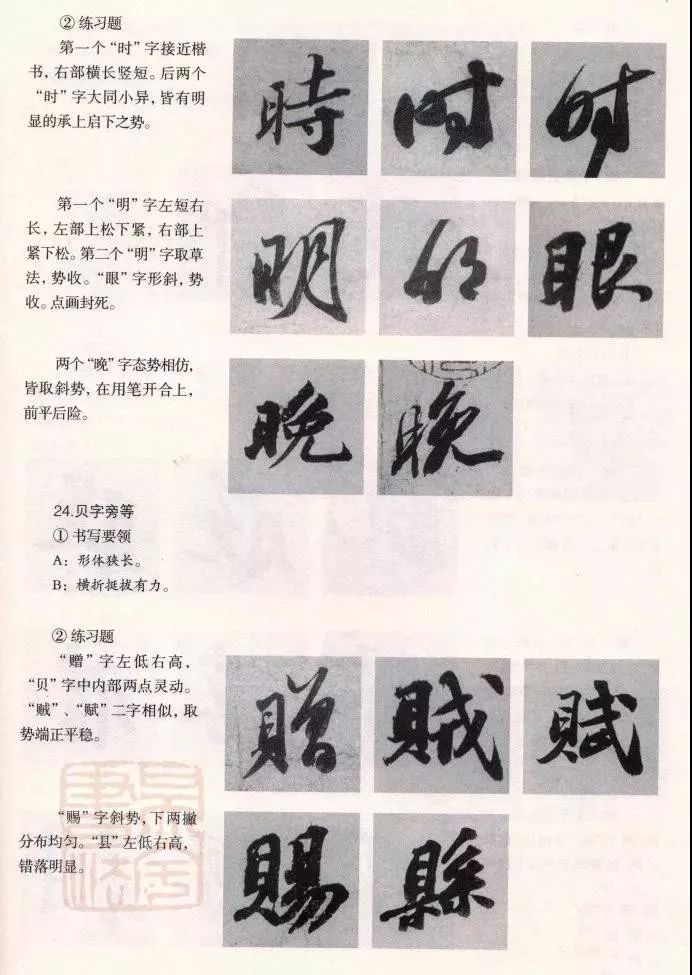 ② 练习题
第一个“时”字接近楷
书，右部横长竖短。后两个
“时”字大同小异，皆有明
显的承上启下之势。
時 时 时
第一个“明”字左短右
长，左部上松下紧，右部上
紧下松。第二个“明”字取草
法，势收。“眼”字形斜，势
收。点画封死。
明 明 眼
两个“晚”字态势相仿，
皆取斜势，在用笔开合上，
前平后险。
晚 晚
24.贝字旁等
① 书写要领
A：形体狭长。
B：横折挺拔有力。
② 练习题
“赠”字左低右高，
“贝”字中内部两点灵动。
“贼”、“赋”二字相似，取
势端正平稳。
贈 賊 賦
“赐”字斜势，下两撇
分布均匀。“县”左低右高，
错落明显。
賜 縣